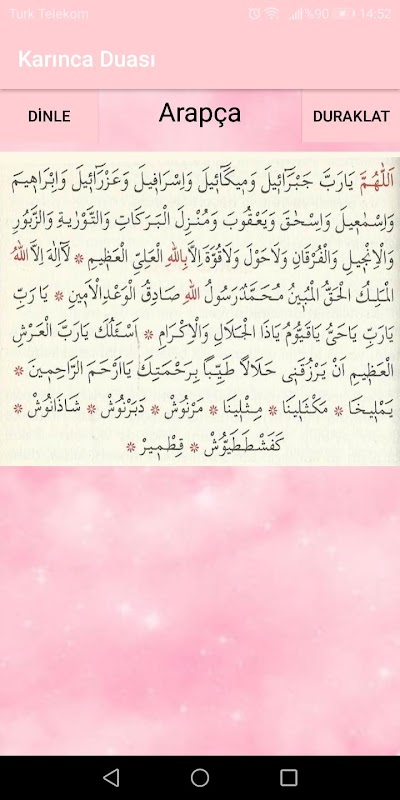 Türk Telekom %90 14:52
Karınca Duası
DİNLE Arapça DURAKLAT
اَللّٰهُمَّ يَارَبَّ جَبْرَآئِيلَ وَمِيكَآئِيلَ وَاِسْرَافِيلَ وَعَزْرَآئِيلَ وَاِبْرَاهِيمَ
وَاِسْمٰعِيلَ وَاِسْحٰقَ وَيَعْقُوبَ وَمُنْزِلَ الْبَرَكَاتِ وَالتَّوْرٰيةِ وَالزَّبُورِ
وَالْاِنْجِيلِ وَالْفُرْقَانِ وَلَاحَوْلَ وَلَاقُوَّةَ اِلَّا بِاللّٰهِ الْعَلِيِّ الْعَظِيمِ ❊ لَآاِلٰهَ اِلَّا اللّٰهُ
الْمَلِكُ الْحَقُّ الْمُبِينُ مُحَمَّدٌ رَسُولُ اللّٰهِ صَادِقُ الْوَعْدِ الْاَمِينِ ❊ يَا رَبِّ
يَارَبِّ يَاحَىُّ يَاقَيُّومُ يَاذَا الْجَلَالِ وَالْاِكْرَامِ ❊ اَسْئَلُكَ يَارَبَّ الْعَرْشِ
الْعَظِيمِ اَنْ يَرْزُقَنِى حَلَالًا طَيِّبًا بِرَحْمَتِكَ يَااَرْحَمَ الرَّاحِمِينَ ❊
يَمْلِيخَا ❊ مَكْثَلِينَا ❊ مِثْلِينَا ❊ مَرْنُوشْ ❊ دَبَرْنُوشْ ❊ شَاذَنُوشْ ❊
كَفَشْطَطَيُّوشْ ❊ قِطْمِيرْ ❊